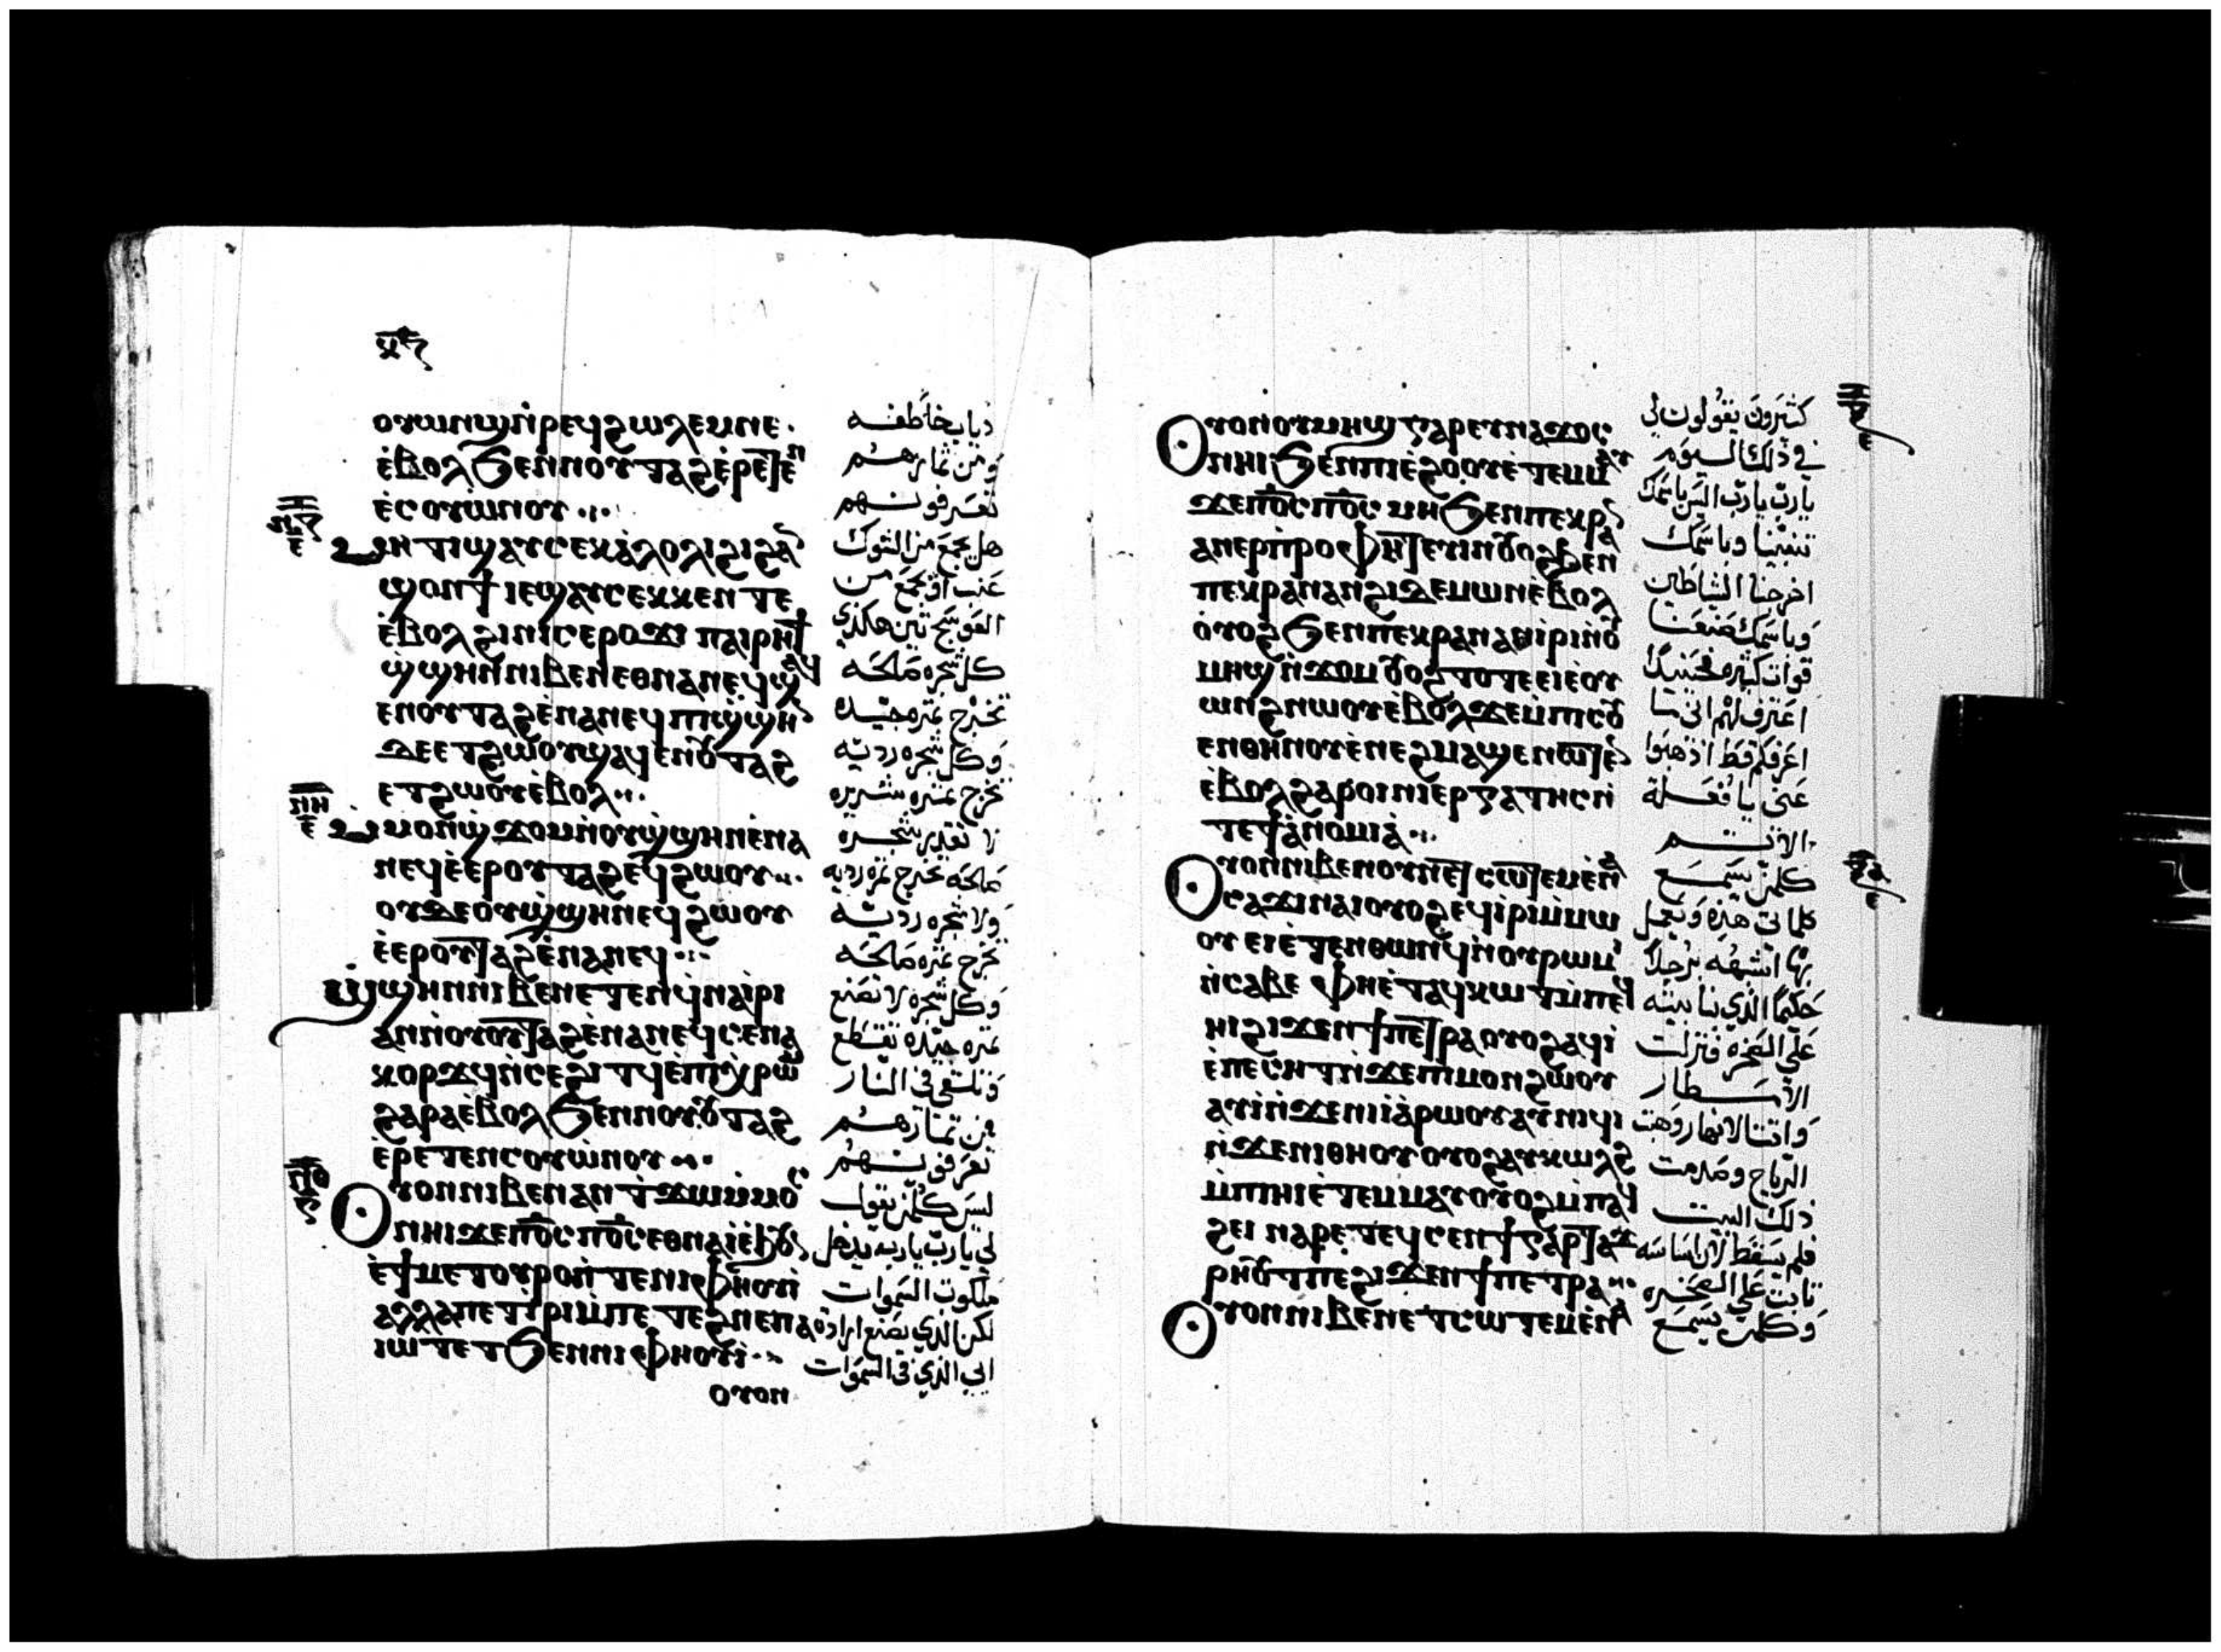 ⲟⲩⲱⲛϣⲛ̀ⲣⲉϥϩⲱⲗⲉⲙⲛⲉ.
ⲉ̀ⲃⲟⲗϧⲉⲛⲛⲟⲩⲧⲁϩⲉ̀ⲣⲉⲧⲉⲛ
ⲉ̀ⲥⲟⲩⲱ̀ⲛⲟⲩ
ⲙⲏⲧⲓϣⲁⲩⲥⲉⲕⲁ̀ⲗⲟⲗⲓϩⲓϩⲁ
ϣⲟⲛϯⲓⲉϣⲁⲩⲥⲉⲕⲕⲉⲛⲧⲉ
ⲉ̀ⲃⲟⲗϩⲓⲛⲓⲥⲉⲣⲟϫⲓ ⲡⲁⲓⲣⲏϯ
ϣ̀ϣⲏⲛⲛⲓⲃⲉⲛⲉⲑⲛⲁⲛⲉϥϣⲁϥ
ⲉⲛⲟⲩⲧⲁϩⲉ̀ⲛⲁⲛⲉϥⲡⲓϣ̀ϣⲏⲛ
ⲇⲉⲉⲧϩⲱⲟⲩϣⲁϥⲉⲛⲟⲩⲧⲁϩ
ⲉⲧϩⲱⲟⲩⲉ̀ⲃⲟⲗ
ⲛⲏ
ⲙ̀ⲙⲟⲛϣ̀ϫⲟⲙⲛ̀ⲟⲩϣ̀ϣⲏⲛⲉ̀ⲛⲁ
ⲛⲉϥⲉ̀ⲉⲣⲟⲩⲧⲁϩⲉϥϩⲱⲟⲩ
ⲟⲩⲇⲉⲟⲩϣ̀ϣⲏⲛⲉϥϩⲱⲟⲩ
ⲉ̀ⲉⲣⲟⲩⲧⲁϩⲉ̀ⲛⲁⲛⲉϥ
ϣ̀ϣⲏⲛⲛⲓⲃⲉⲛⲉⲧⲉⲛϥ̀ⲛⲁⲓ̀ⲣⲓ
ⲁⲛⲛ̀ⲟⲩⲟⲩⲧⲁϩⲉ̀ⲛⲁⲛⲉϥⲥⲉⲛⲁ
ⲕⲟⲣϫϥⲛ̀ⲥⲉϩⲓⲧϥⲉ̀ⲡⲓⲭ̀ⲣⲱⲙ
ϩⲁⲣⲁⲉ̀ⲃⲟⲗϧⲉⲛⲛⲟⲩⲟⲩⲧⲁϩ
ⲉ̀ⲣⲉⲧⲉⲛⲥⲟⲩⲱ̀ⲛⲟⲩ
ⲛⲑ
ⲟⲩⲟⲛⲛⲓⲃⲉⲛⲁⲛⲧ̀ϫⲱⲙ̀ⲙⲟⲥ
ⲛⲏⲓϫⲉⲡⲟ̅ⲥ̅ⲡⲟ̅ⲥ̅ⲉⲑⲛⲁⲓ̀ⲉ̀ϧⲟⲩⲛ
ⲉ̀ϯⲙⲉⲧⲟⲩⲣⲟⲛ̀ⲧⲉⲛⲓⲫⲏⲟⲩⲓ̀
ⲁⲗⲗⲁⲡⲉⲧⲓ̀ⲣⲓⲙ̀ⲡⲉⲧⲉϩⲛⲉⲡⲁ
ⲓⲱⲧⲉⲧϧⲉⲛⲛⲓⲫⲏⲟⲩⲓ̀
ⲟⲩⲟⲛ
ذياب خاطفه
ومن ثمارهم
تعرفونهم
هل يجمع من الشوك
عنب او يجمع من
العوسج تين هكذي
كل شجره صالحه
تخرج ثمره جيده
وكل شجره رديه
تخرج ثمره شريره
لا تقدر شجره
صالحه تخرج ثمره رديه
ولا شجره رديه
تخرج ثمره صالحه
وكل شجره لا تصنع
ثمره جيده تقطع
وتلقى في النار
من ثمارهم
تعرفونهم
ليس كلمن يقول
لي يارب يارب يدخل
ملكوت السموات
لكن الذي يصنع ارادة
ابي الذي في السموات
ⲟⲩⲟⲛⲟⲩⲙⲏϣⲅⲁⲣⲉⲩⲛⲁϫⲟⲥ
ⲛⲏⲓϧⲉⲛⲡⲓⲉ̀ϩⲟⲟⲩⲉ̀ⲧⲉⲙⲙⲁⲩ
ϫⲉⲡⲟ̅ⲥ̅ⲡⲟ̅ⲥ̅ⲙⲏϧⲉⲛⲡⲉⲕⲣⲁⲛ
ⲁⲛⲉⲣⲡ̀ⲣⲟⲫⲏⲧⲉⲩⲓⲛⲟⲩⲟϩϧⲉⲛ
ⲡⲉⲕⲣⲁⲛⲁⲛϩⲓⲇⲉⲙⲱⲛⲉ̀ⲃⲟⲗ
ⲟⲩⲟϩϧⲉⲛⲡⲉⲕⲣⲁⲛⲁⲛⲓ̀ⲣⲓⲛ̀ⲟⲩ
ⲙⲏϣⲛ̀ϫⲟⲙⲟⲩⲟϩⲧⲟⲧⲉⲉⲓⲉ̀ⲟⲩ
ⲱⲛϩⲛⲱⲟⲩⲉ̀ⲃⲟⲗϫⲉⲙ̀ⲡⲓⲥⲟⲩ
ⲉⲛⲑⲏⲛⲟⲩⲉ̀ⲛⲉϩⲙⲁϣⲉⲛⲱⲧⲉⲛ
ⲉ̀ⲃⲟⲗϩⲁⲣⲟⲓⲛⲓⲉⲣⲅⲁⲧⲏⲥⲛ̀
ⲧⲉϯⲁ̀ⲛⲟⲙⲓⲁ̀
ⲟⲩⲟⲛⲛⲓⲃⲉⲛⲟⲩⲛⲉⲧⲥⲱⲧⲉⲙⲉ̀ⲛⲁ
ⲥⲁϫⲓⲛⲁⲓⲟⲩⲟϩⲉϥⲓ̀ⲣⲓⲙ̀ⲙⲱ
ⲟⲩ ⲉⲓⲉ̀ⲧⲉⲛⲑⲱⲛϥⲛ̀ⲟⲩⲣⲱⲙⲓ
ⲛ̀ⲥⲁⲃⲉ ⲫⲏⲉ̀ⲧⲁϥⲕⲱⲧⲙ̀ⲡⲉϥ
ⲏⲓϩⲓϫⲉⲛϯⲡⲉⲧⲣⲁⲟⲩⲟϩⲁϥⲓ
ⲉ̀ⲡⲉⲥⲏⲧⲛ̀ϫⲉⲡⲓⲙⲟⲩⲛϩⲱⲟⲩ
ⲁⲩⲓ̀ⲛ̀ϫⲉⲛⲓⲓⲁ̀ⲣⲱⲟⲩⲁⲩⲛⲓϥⲓ
ⲛ̀ϫⲉⲛⲓⲑⲏⲟⲩ ⲟⲩⲟϩⲁⲩⲕⲱⲗϩ
ⲙ̀ⲡⲓⲏⲓⲉ̀ⲧⲉⲙⲙⲁⲩⲟⲩⲟϩⲙ̀ⲡⲉϥ
ϩⲉⲓ ⲛⲁⲣⲉⲧⲉϥⲥⲉⲛϯⲅⲁⲣⲧⲁϫ
ⲣⲏⲟⲩⲧⲡⲉϩⲓϫⲉⲛϯⲡⲉⲧⲣⲁ
ⲟⲩⲟⲛⲛⲓⲃⲉⲛⲉⲧⲥⲱⲧⲉⲙⲉ̀ⲛⲁ
كثيرون يقولون لي
في ذلك اليوم
يارب يارب اليس باسمك
تنبينا وباسمك
اخرجنا الشياطين
وباسمك صنعنا
قوات كثيره فحينيذ
اعترف لهم اني ما
اعرفكم قط اذهبوا
عني يا فعلة
الاثم
كلمن يسمع
كلماتي هذه ويعمل
بها اشبهه برجل
حكيم الذي بنا بيته
على الصخره فنزلت
الامطار
واتت الانهار وهبت
الرياح وصدمت
ذلك البيت
فلم يسقط لان اساسه
ثابت على الصخره
وكلمن يسمع